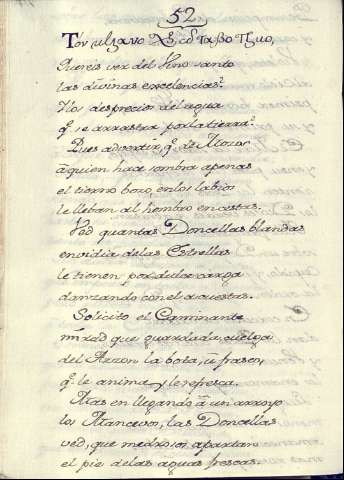 52.
Quereis ver del Vino santo
las divinas excelencias?
Y los desprecios del agua
q.e se arrastra por la tierra?
Pues advertid, q.e de Mozos
à quien hace sombra apenas
el tierno bozo, en los labios
le lleban al hombro en cestas.
Ved quantas Doncellas blandas
envidia de las Estrellas
le tienen por dulce carga
danzando con el acuestas.
Solicito el Caminante
mirad que guardada, cuelga
del Arzon la bota, û frasco,
q.e le anima y le refresca.
Mas en llegando à un arroyo
los Mancevos, las Doncellas
ved, que medrosos apartan
el pie de las aguas frescas.